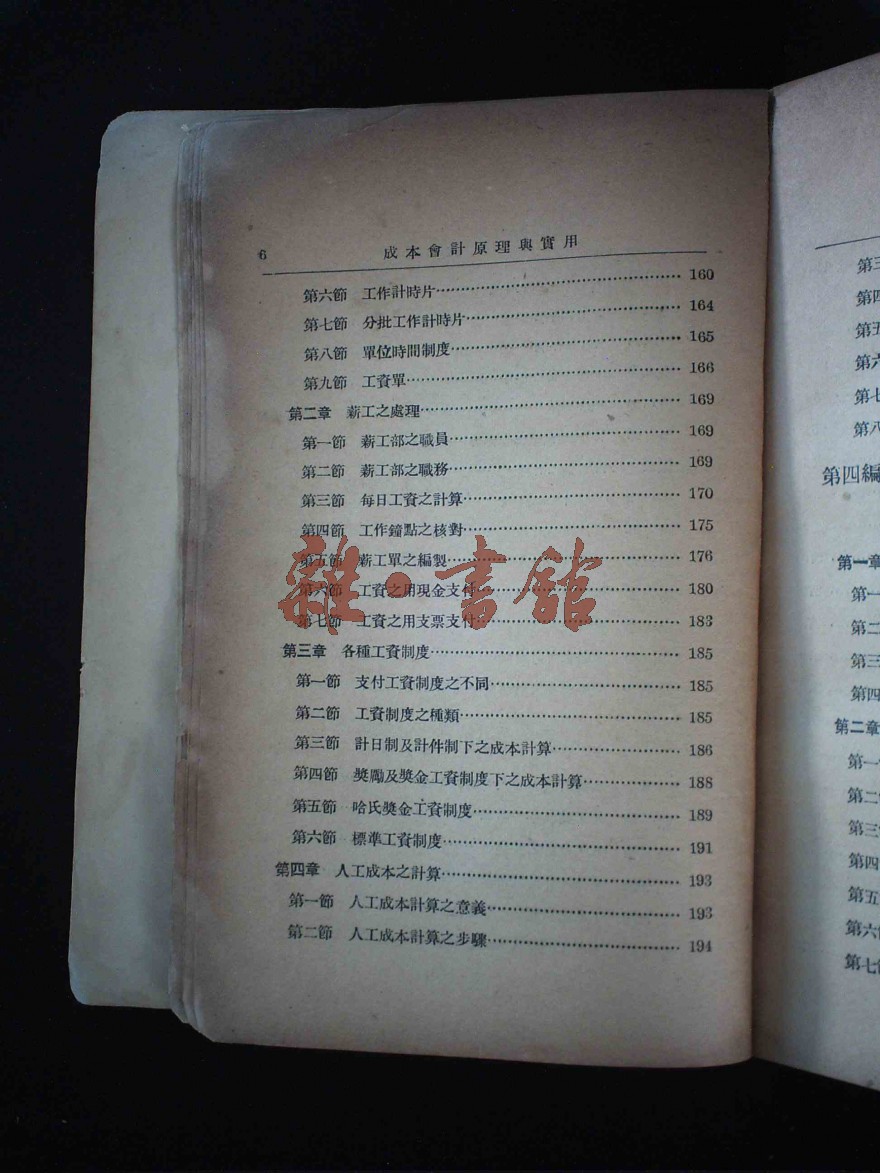 6 成本會計原理與實用
第六節 工作計時片 160
第七節 分批工作計時片 164
第八節 單位時間制度 165
第九節 工資單 166
第二章 薪工之處理 169
第一節 薪工部之職員 169
第二節 薪工部之職務 169
第三節 每日工資之計算 170
第四節 工作鐘點之核對 175
第五節 薪工單之編製 176
第六節 工資之用現金支付 180
第七節 工資之用支票支付 183
第三章 各種工資制度 185
第一節 支付工資制度之不同 185
第二節 工資制度之種類 185
第三節 計日制及計件制下之成本計算 186
第四節 獎勵及獎金工資制度下之成本計算 188
第五節 哈氏獎金工資制度 189
第六節 標準工資制度 191
第四章 人工成本之計算 193
第一節 人工成本計算之意義 193
第二節 人工成本計算之步驟 194
雜·書館
第三
第四
第五
第六
第七
第八
第四編
第一章
第一
第二
第三
第四
第二章
第一
第二
第三
第四
第五
第六
第七